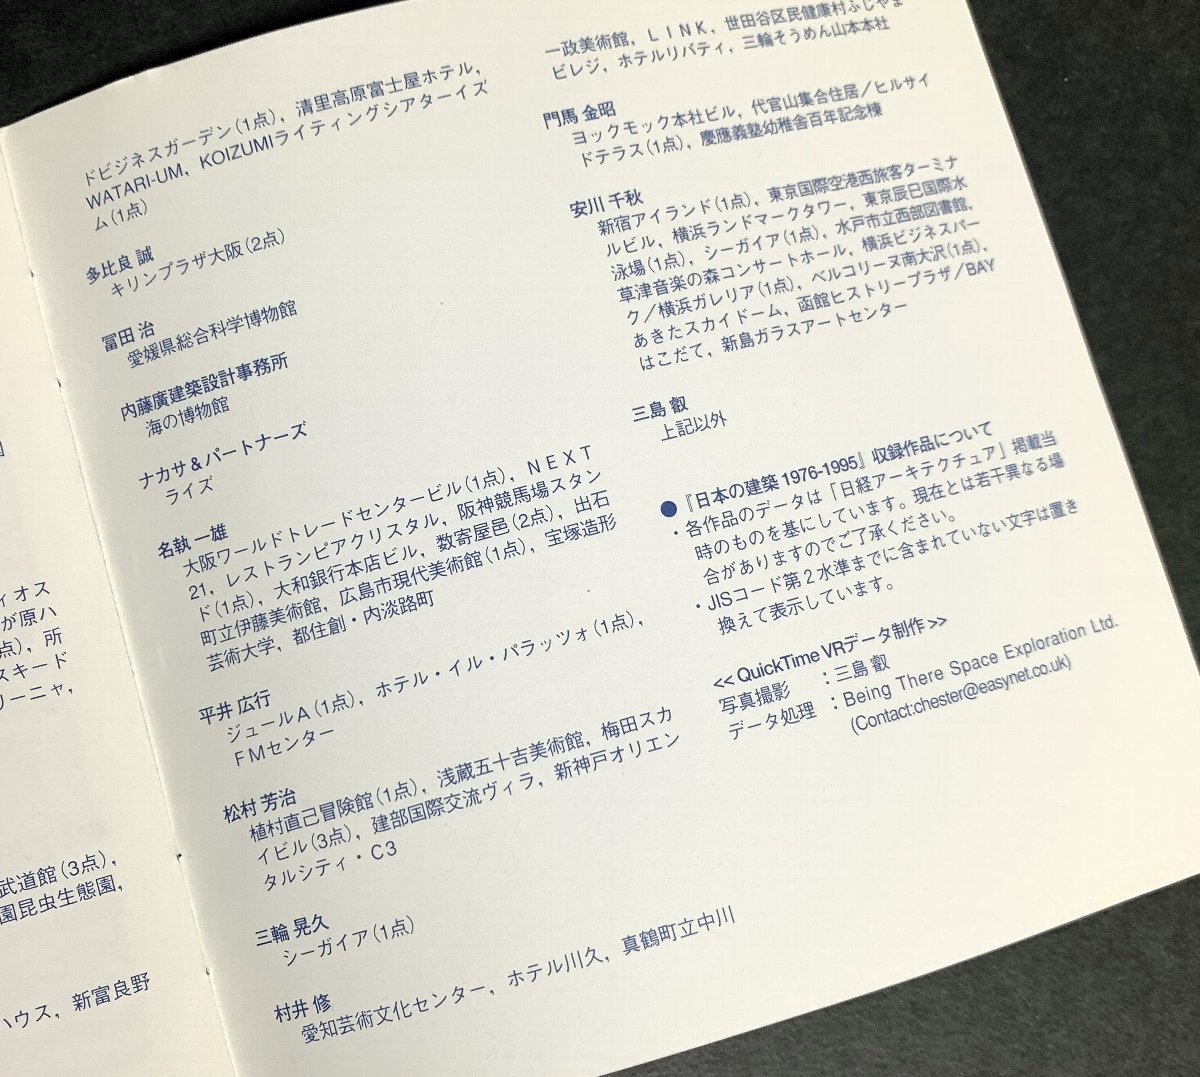 ィオス
が原ハ
点)，所
スキード
リーニャ，
武道館(3点)，
園昆虫生態園，
ハウス，新富良野
ドビジネスガーデン(1点)，清里高原富士屋ホテル，
WATARI-UM，KOIZUMIライティングシアターイズ
ム(1点)
多比良 誠
キリンプラザ大阪(2点)
冨田 治
愛媛県総合科学博物館
内藤廣建築設計事務所
海の博物館
ナカサ＆パートナーズ
ライズ
名執 一雄
大阪ワールドトレードセンタービル(1点)，ＮＥＸＴ
21，レストランピアクリスタル，阪神競馬場スタン
ド(1点)，大和銀行本店ビル，数寄屋邑(2点)，出石
町立伊藤美術館，広島市現代美術館(1点)，宝塚造形
芸術大学，都住創・内淡路町
平井 広行
ジュールＡ(1点)，ホテル・イル・パラッツォ(1点)，
ＦＭセンター
松村 芳治
植村直己冒険館(1点)，浅蔵五十吉美術館，梅田スカ
イビル(3点)，建部国際交流ヴィラ，新神戸オリエン
タルシティ・Ｃ3
三輪 晃久
シーガイア(1点)
村井 修
愛知芸術文化センター，ホテル川久，真鶴町立中川
一政美術館，ＬＩＮＫ，世田谷区民健康村ふじやま
ビレジ，ホテルリバティ，三輪そうめん山本本社
門馬 金昭
ヨックモック本社ビル，代官山集合住居／ヒルサイ
ドテラス(1点)，慶應義塾幼稚舎百年記念棟
安川 千秋
新宿アイランド(1点)，東京国際空港西旅客ターミナ
ルビル，横浜ランドマークタワー，東京辰巳国際水
泳場(1点)，シーガイア(1点)，水戸市立西部図書館，
草津音楽の森コンサートホール，横浜ビジネスパー
ク／横浜ガレリア(1点)，ベルコリーヌ南大沢(1点)，
あきたスカイドーム，函館ヒストリープラザ／BAY
はこだて，新島ガラスアートセンター
三島 叡
上記以外
●『日本の建築 1976-1995』収録作品について
・各作品のデータは「日経アーキテクチュア」掲載当
時のものを基にしています。現在とは若干異なる場
合がありますのでご了承ください。
・JISコード第２水準までに含まれていない文字は置き
換えて表示しています。
<< QuickTime VRデータ制作 >>
写真撮影 ：三島 叡
データ処理 ：Being There Space Exploration Ltd.
(Contact:chester@easynet.co.uk)